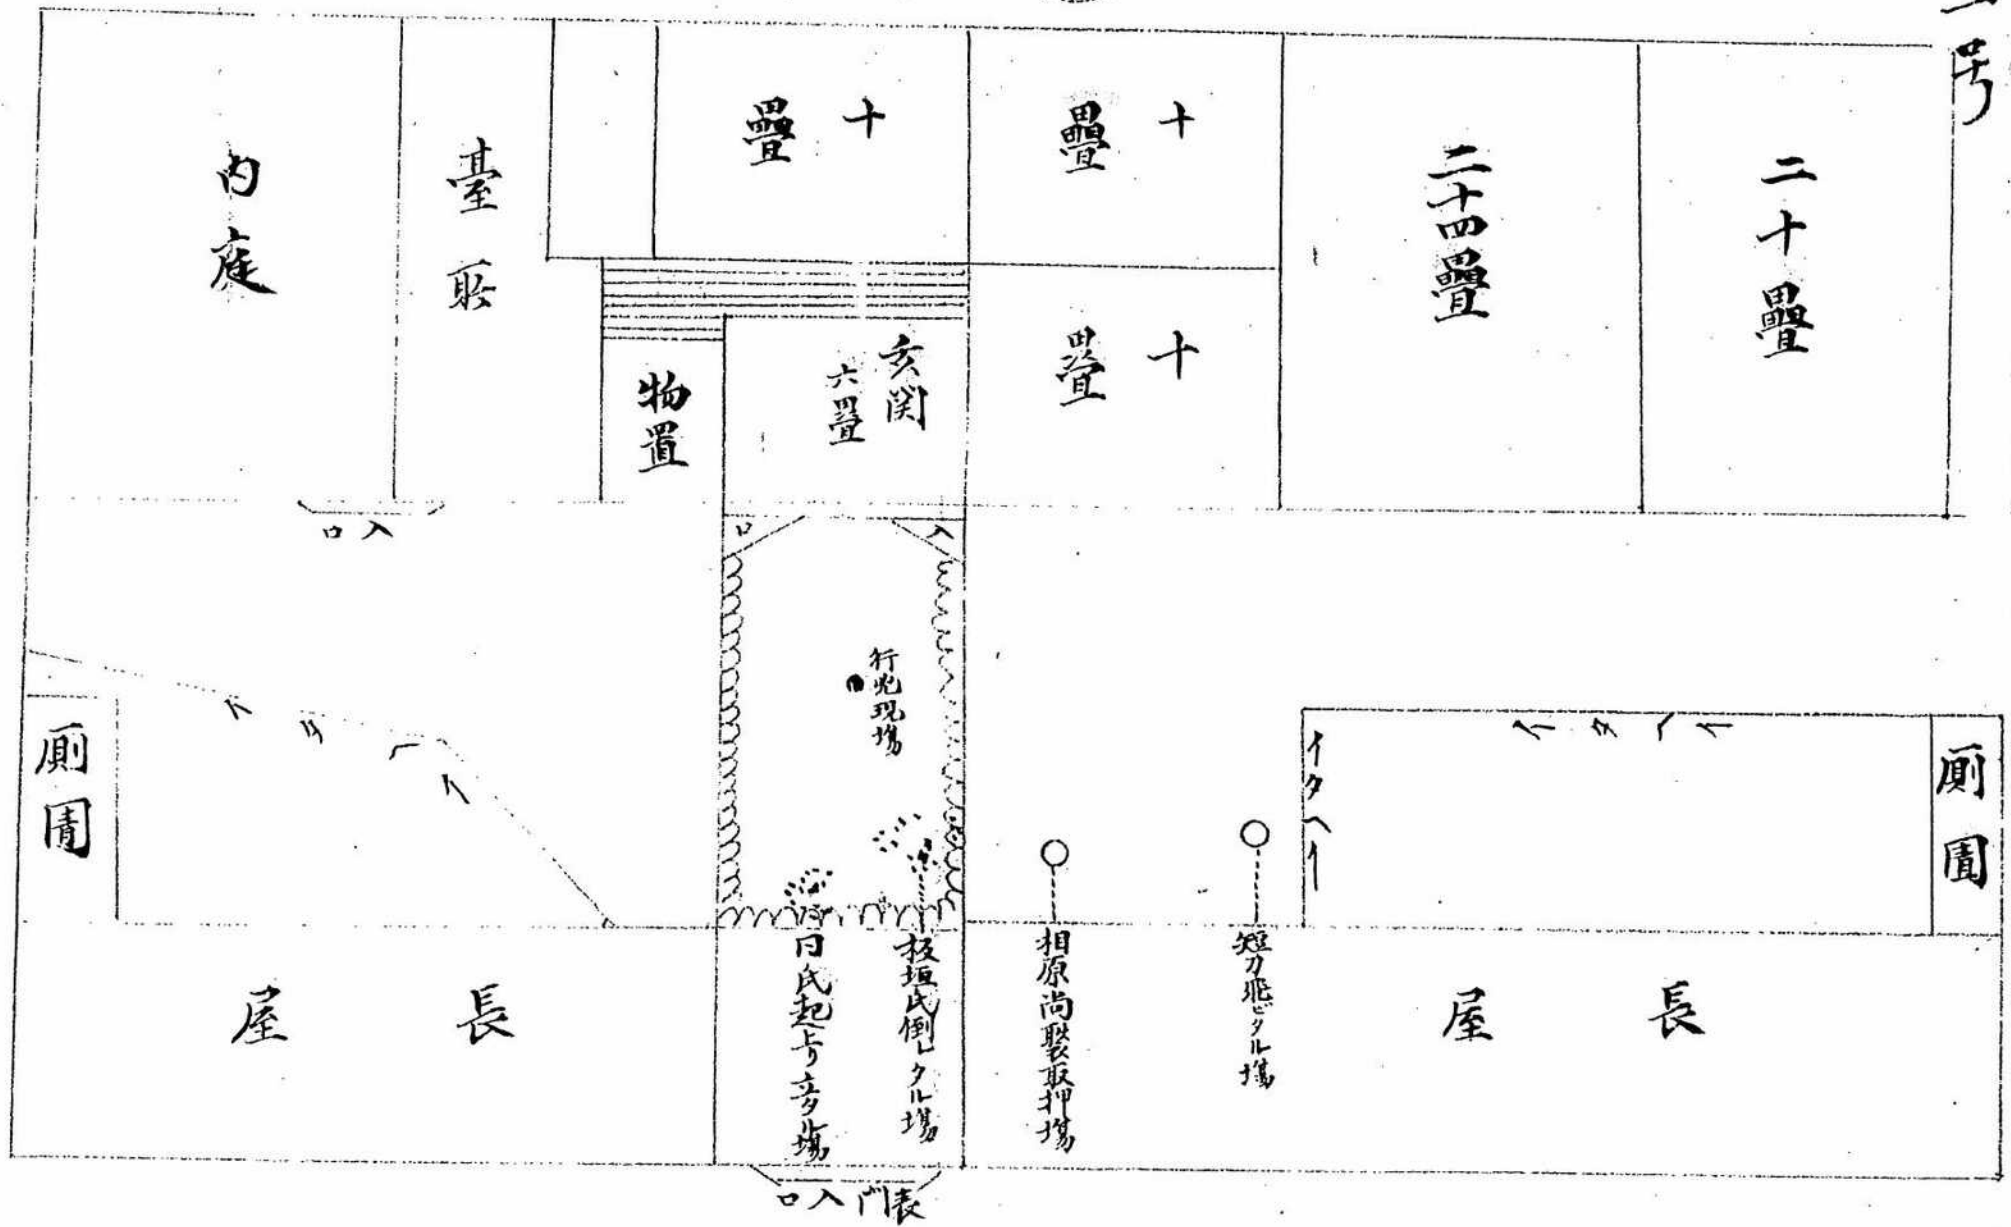 号
二十疊
二十四疊
十疊
十疊
十疊
玄関
六畳
物置
臺所
内庭
入口
入口
行兇現場
イタヘイ
イタヘイ
イタヘイ
厠圊
厠圊
短刀飛ビタル場
相原尚褧取押場
板垣氏倒レタル場
同氏起上リ立タル場
長屋
長屋
表門入口